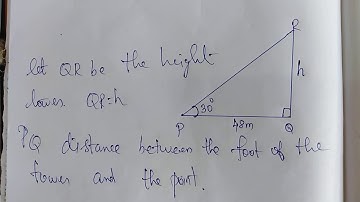 let QR be the height
tower QR=h
PQ distance between the foot of the
tower and the point.
R
h
30°
P
48m
Q